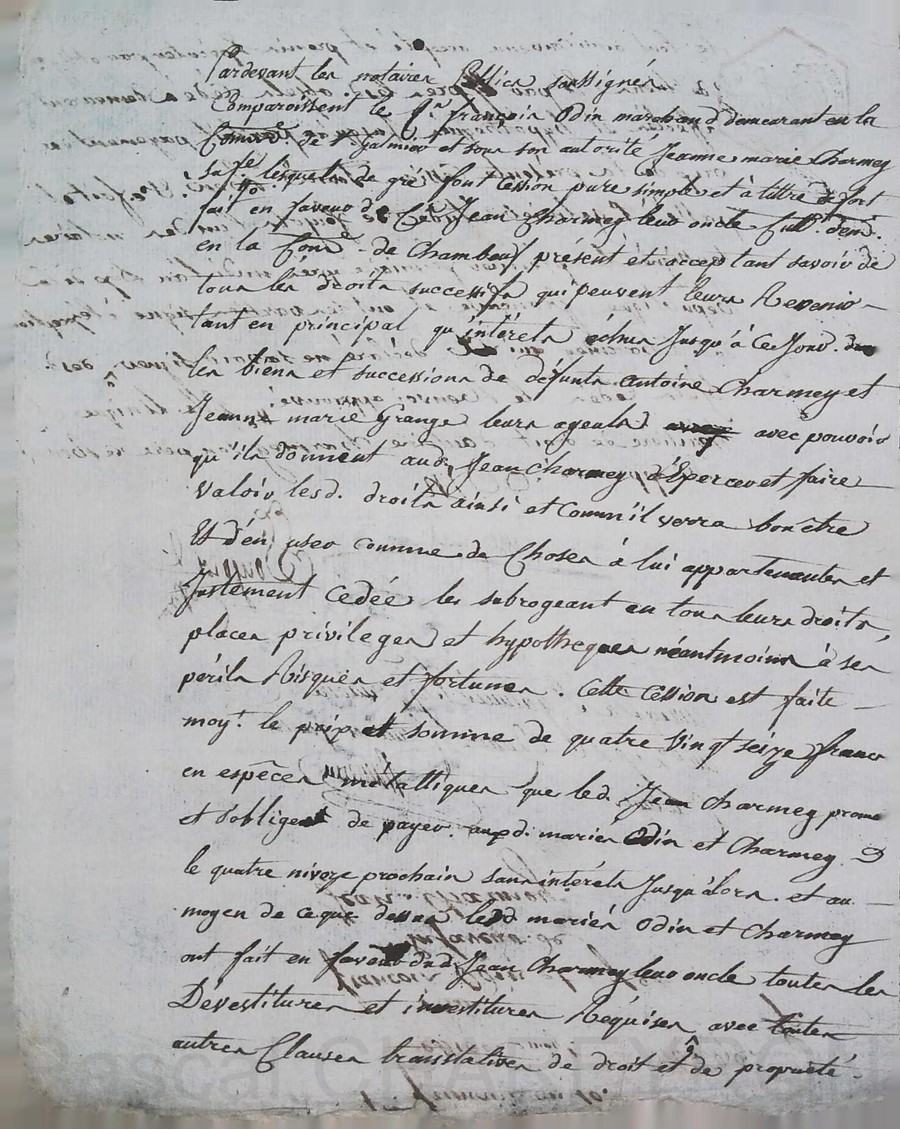 Pardevant les notaires Publics soussignés
Comparoissent le Sr. françois Odin marchand demeurant en la
Comune de St galmier et sous son autorité Jeanne marie Charmey
sa fe. lesquels de gré font cession pure simple et à titre de fort
fait en faveur de Cen. Jean Charmey leur oncle Cult. dem.
en la Comne. de Chambeuf présent et acceptant savoir de
tous les droits successifs qui peuvent leurs Revenir
tant en principal qu'intérets échus Jusqu'à ce Jour. des
les biens et successions de défunts antoine Charmey et
Jeanne marie Grange leurs ayeuls avec pouvoir
qu'ils donnent aud. Jean Charmey d'Epercer et faire
Valoir lesd. droits ainsi et Comm'il verra bon être
Et d'en user comme de Choses à lui appartenantes et
Justement Cedée les subrogeant en tous leurs droits,
places privileges et hypotheques néantmoins à ses
périls Risques et fortunes. Cette Cession est faite
moyt. le prix et somme de quatre Vingt seize francs
en espèces métalliques que led. Jean Charmey prome
et s'obligent de payer auxd. mariés Odin et Charmey D
le quatre nivoze prochain sans intérets Jusqu'alors. et au
moyen de ce que dessus lesd mariés Odin et Charmey
ont fait en faveur dud. Jean Charmey leur oncle toutes les
Dévestitures et investitures Réquises avec toutes
autres Clauses translatives de droit et de propriété.
Pascal CHARMEY